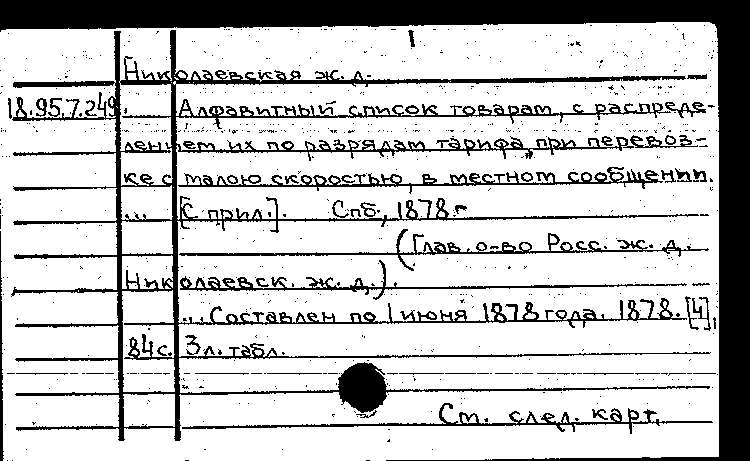 Николаевская ж. д.
18.95.7.249. Алфавитный список товарам, с распреде-
лением их по разрядам тарифа, при перевоз-
ке с малою скоростью, в местном сообщении.
... [С прил.]. Спб., 1878.
(Глав. о-во Росс. ж. д.
Николаевск. ж. д.).
... Составлен по 1 июня 1878 года. 1878. [4],
84 с. 3 л. табл.
См. след. карт.